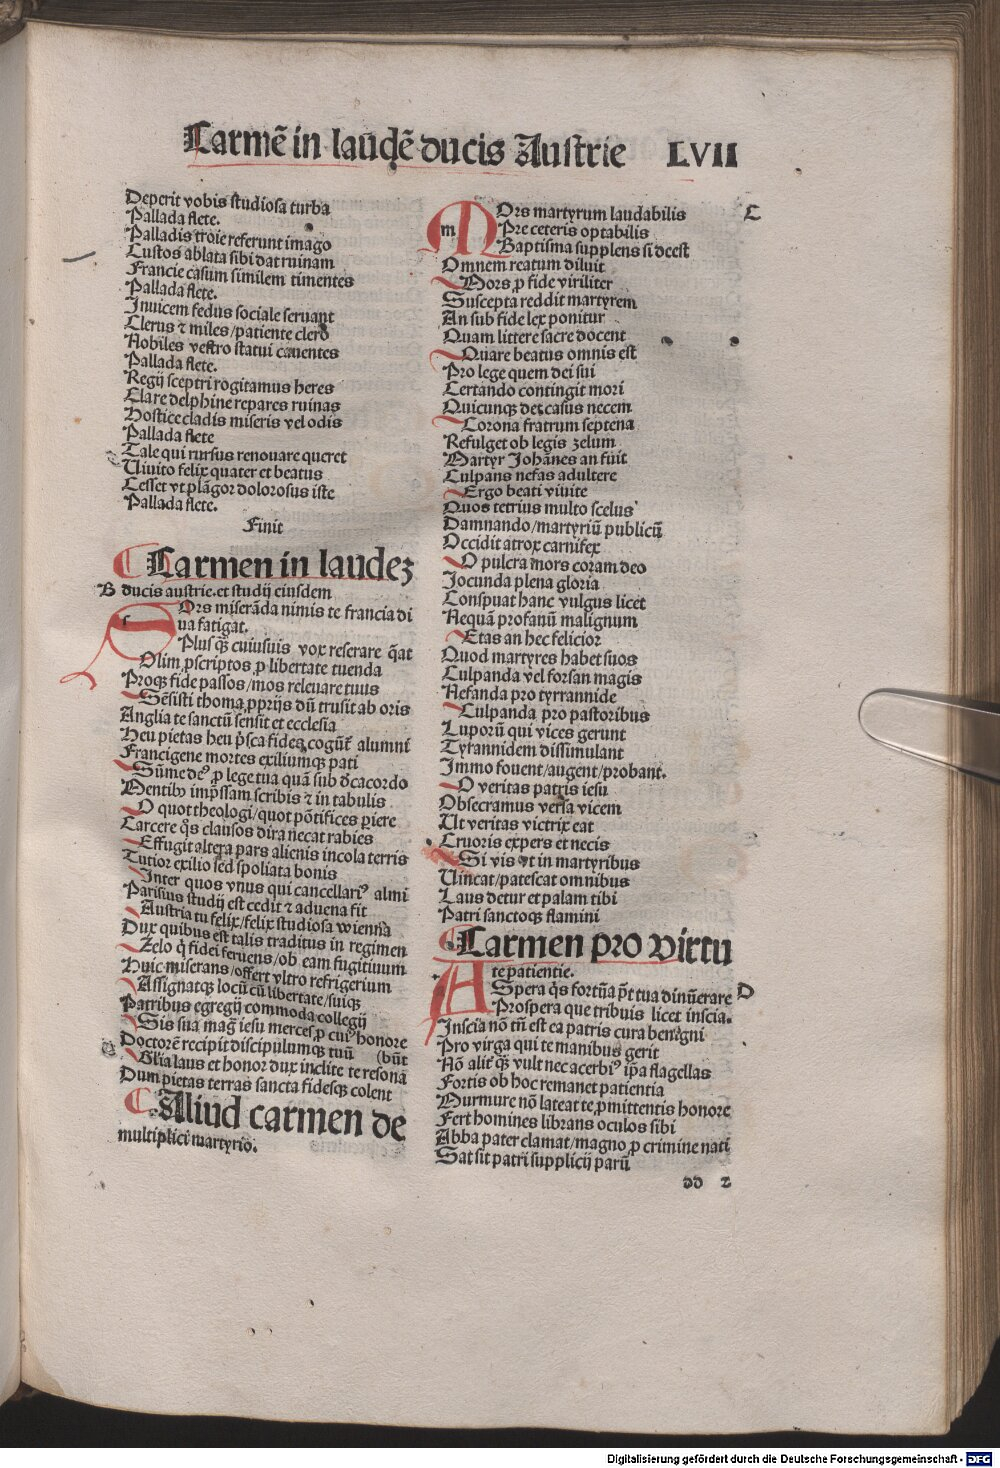 Carmē in laudē ducis Austrie LVII
Deperit vobis studiosa turba
Pallada flete.
Palladis troie referunt imago
Custos ablata sibi dat ruinam
Francie casum similem timentes
Pallada flete.
Invicem fedus sociale servant
Clerus ⁊ miles/patiente clero
Nobiles vestro statui caventes
Pallada flete.
Regij sceptri rogitamus heres
Clare delphine repares ruinas
Hostice cladis miseris vel odis
Pallada flete
Tale qui rursus renovare queret
Vivito felix quater et beatus
Cesset vt plāgor dolorosus iste
Pallada flete.
Finit
Carmen in laudeꝫ
B ducis austrie.et studij eiusdem
SOrs miserāda nimis te francia di
va fatigat.
Plusqꝫ cuiusuis vox reserare q̄at
Olim ꝓscriptos ꝓ libertate tuenda
Proqꝫ fide passos/mos relevare tuus
Sēsisti thoma ꝓprijs dū trusit ab oris
Anglia te sanctū sensit et ecclesia
Heu pietas heu p̄sca fideꝫ cogūt alumni
Francigene mortes exiliumqꝫ pati
Sūme deꝰ ꝓ lege tua quā sub dcacordo
Mentibꝫ imp̄ssam scribis ⁊ in tabulis
O quot theologi/quot pōtifices ꝑiere
Carcere q̄s clausos dira necat rabies
Effugit altera pars alienis incola terris
Tutior exilio sed spoliata bonis
Inter quos vnus qui cancellariꝰ almi
Parisius studij est cedit ⁊ aduena fit
Austria tu felix/felix studiosa wienna
Dux quibus est talis traditus in regimen
Zelo q̄ fidei fervens/ob eam fugitivum
Huic miserans/offert vltro refrigerium
Assignatqꝫ locū cū libertate/suisqꝫ
Patribus egregij commoda collegij
Sis sua mag̃ iesu merces ꝓ cuiꝰ honore
Doctorē recipit discipulumqꝫ tuū (būt
Glīa laus et honor dux inclite te resonā
Dum pietas terras sancta fidesqꝫ colent
Aliud carmen de
multiplici martyrio.
MOrs martyrum laudabilis C
Pre ceteris optabilis
Baptisma supplens si deest
Omnem reatum diluit
Mors ꝓ fide viriliter
Suscepta reddit martyrem
An sub fide lex ponitur
Quam littere sacre docent
Quare beatus omnis est
Pro lege quem dei sui
Certando contingit mori
Quicunqꝫ det casus necem
Corona fratrum septena
Refulget ob legis zelum
Martyr Johānes an fuit
Culpans nefas adultere
Ergo beati vivite
Quos tetrius multo scelus
Damnando/martyriū publicū
Occidit atrox carnifex
O pulcra mors coram deo
Jocunda plena gloria
Conspuat hanc vulgus licet
Nequā profanū malignum
Etas an hec felicior
Quod martyres habet suos
Culpanda vel forsan magis
Nefanda pro tyrrannide
Culpanda pro pastoribus
Luporū qui vices gerunt
Tyrannidem dissimulant
Immo fouent/augent/probant.
O veritas patris iesu
Obsecramus versa vicem
Ut veritas victrix eat
Cruoris expers et necis
Si vis vt in martyribus
Vincat/patescat omnibus
Laus detur et palam tibi
Patri sanctoqꝫ flamini
Carmen pro virtu
te patientie.
ASpera q̄s fortūa p̄t tua dinūerare D
Prospera que tribuis licet inscia.
Inscia nō tn̄ est ea patris cura benigni
Pro virga qui te manibus gerit
Nō alit̄ qꝫ vult nec acerbiꝰ ip̄a flagellas
Fortis ob hoc remanet patientia
Murmure nō lateat te ꝓmittentis honore
Fert homines librans oculos sibi
Abba pater clamat/magno ꝓ crimine nati
Sat sit patri supplicij parū
dd 2
Digitalisierung gefördert durch die Deutsche Forschungsgemeinschaft - DFG